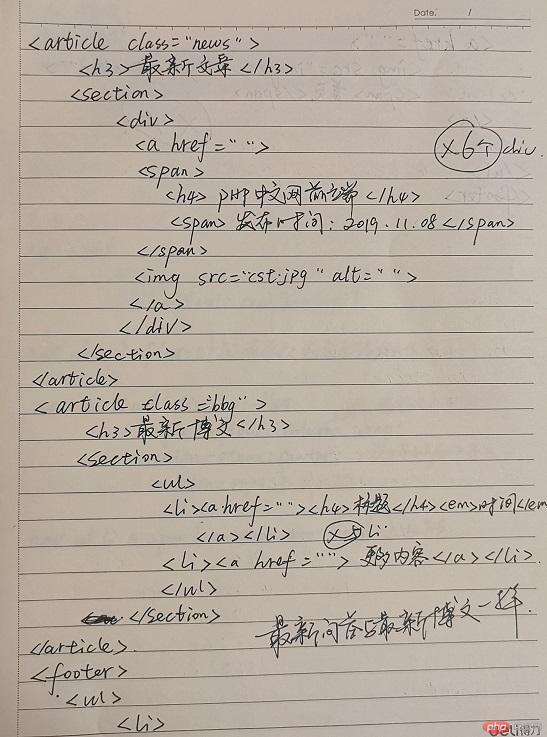 Date: /
<article class="news">
<h3>最新文章</h3>
<section>
<div>
<a href=" ">
×6个 div.
<span>
<h4> php中文网前端 </h4>
<span> 发布时间: 2019.11.08 </span>
</span>
<img src="cst.jpg" alt=" ">
</a>
</div>
</section>
</article>
<article class="bbg">
<h3>最新博文</h3>
<section>
<ul>
<li><a href=" "><h4>标题</h4><em>时间</em
</a></li> ×5 li
<li><a href=" "> 更多内容</a></li>
</ul>
</section>
最新问答与最新博文一样.
</article>
<footer>
<ul>
<li>
deli得力